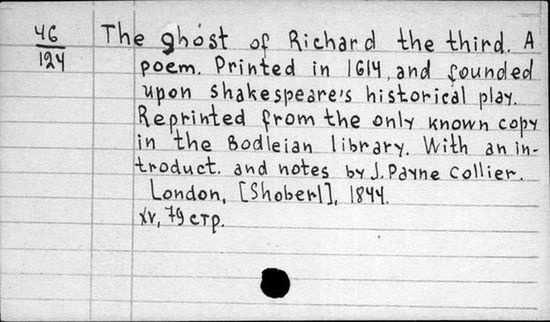 46
124
The ghost of Richard the third. A
poem. Printed in 1614, and founded
upon Shakespeare's historical play.
Reprinted from the only known copy
in the Bodleian library. With an in-
troduct. and notes by J. Payne Collier.
London, [Shoberl], 1844.
XV, 79 стр.